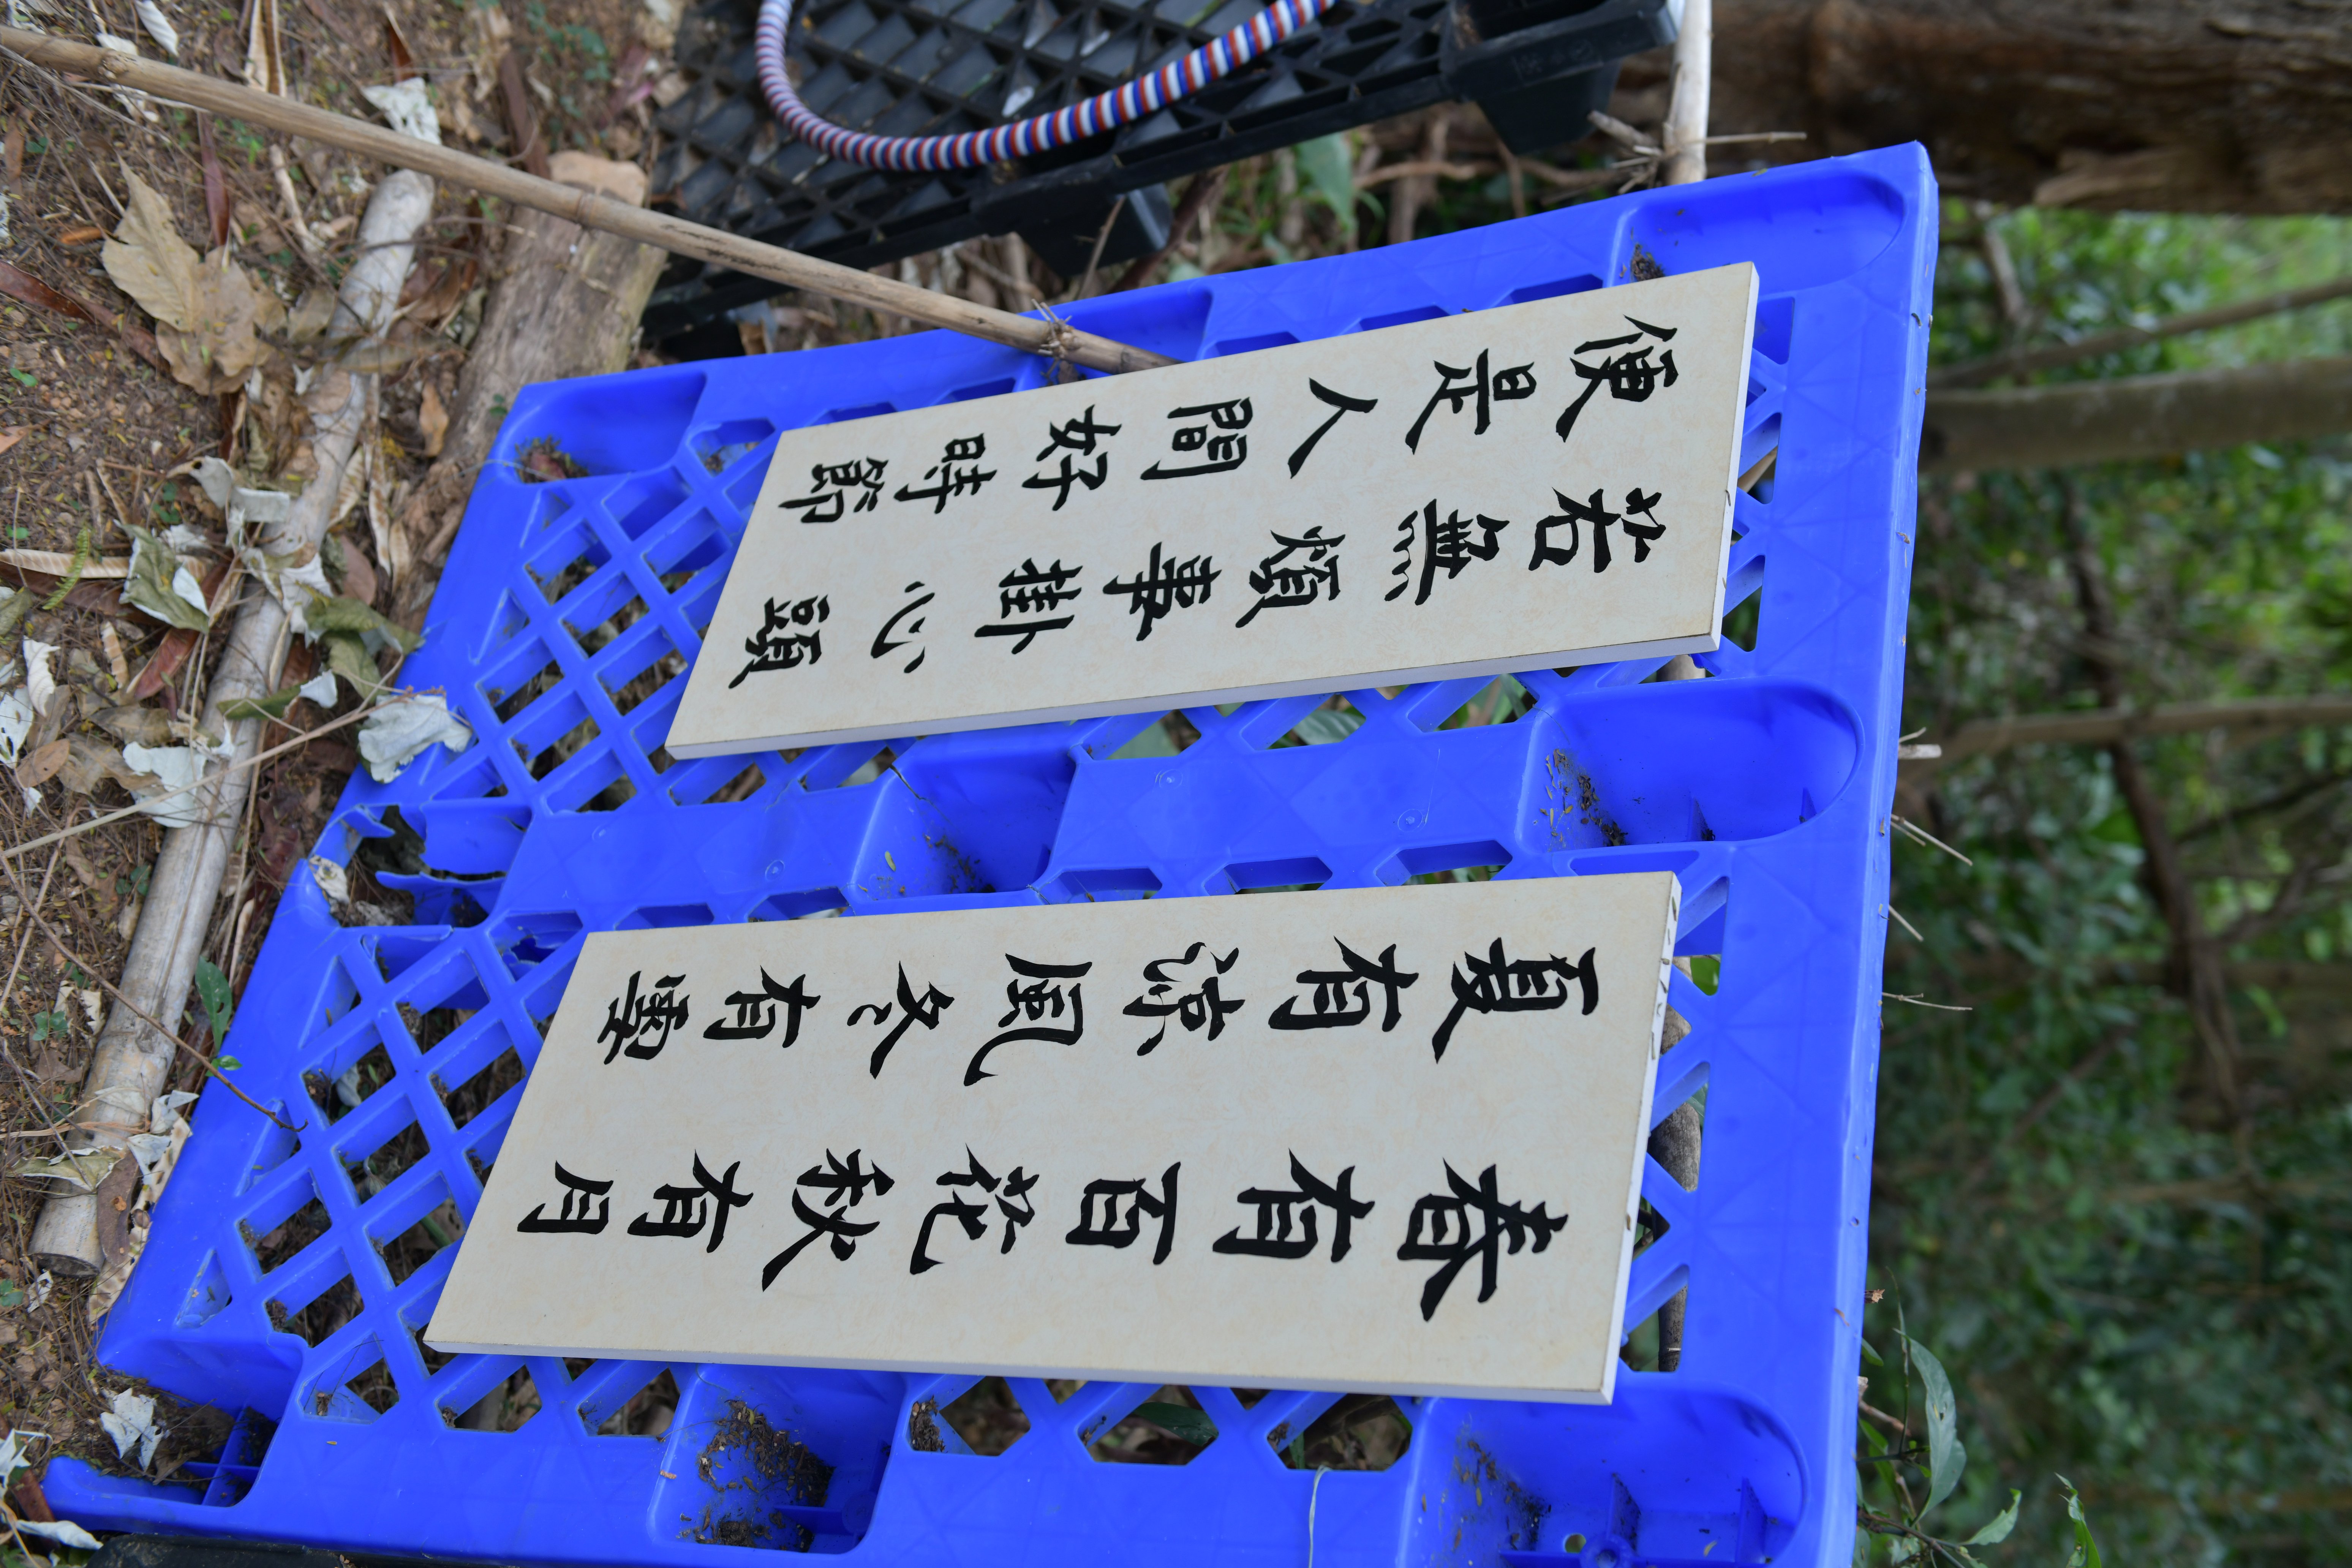 春有百花秋有月
夏有涼風冬有雪
若無煩事掛心頭
便是人間好時節